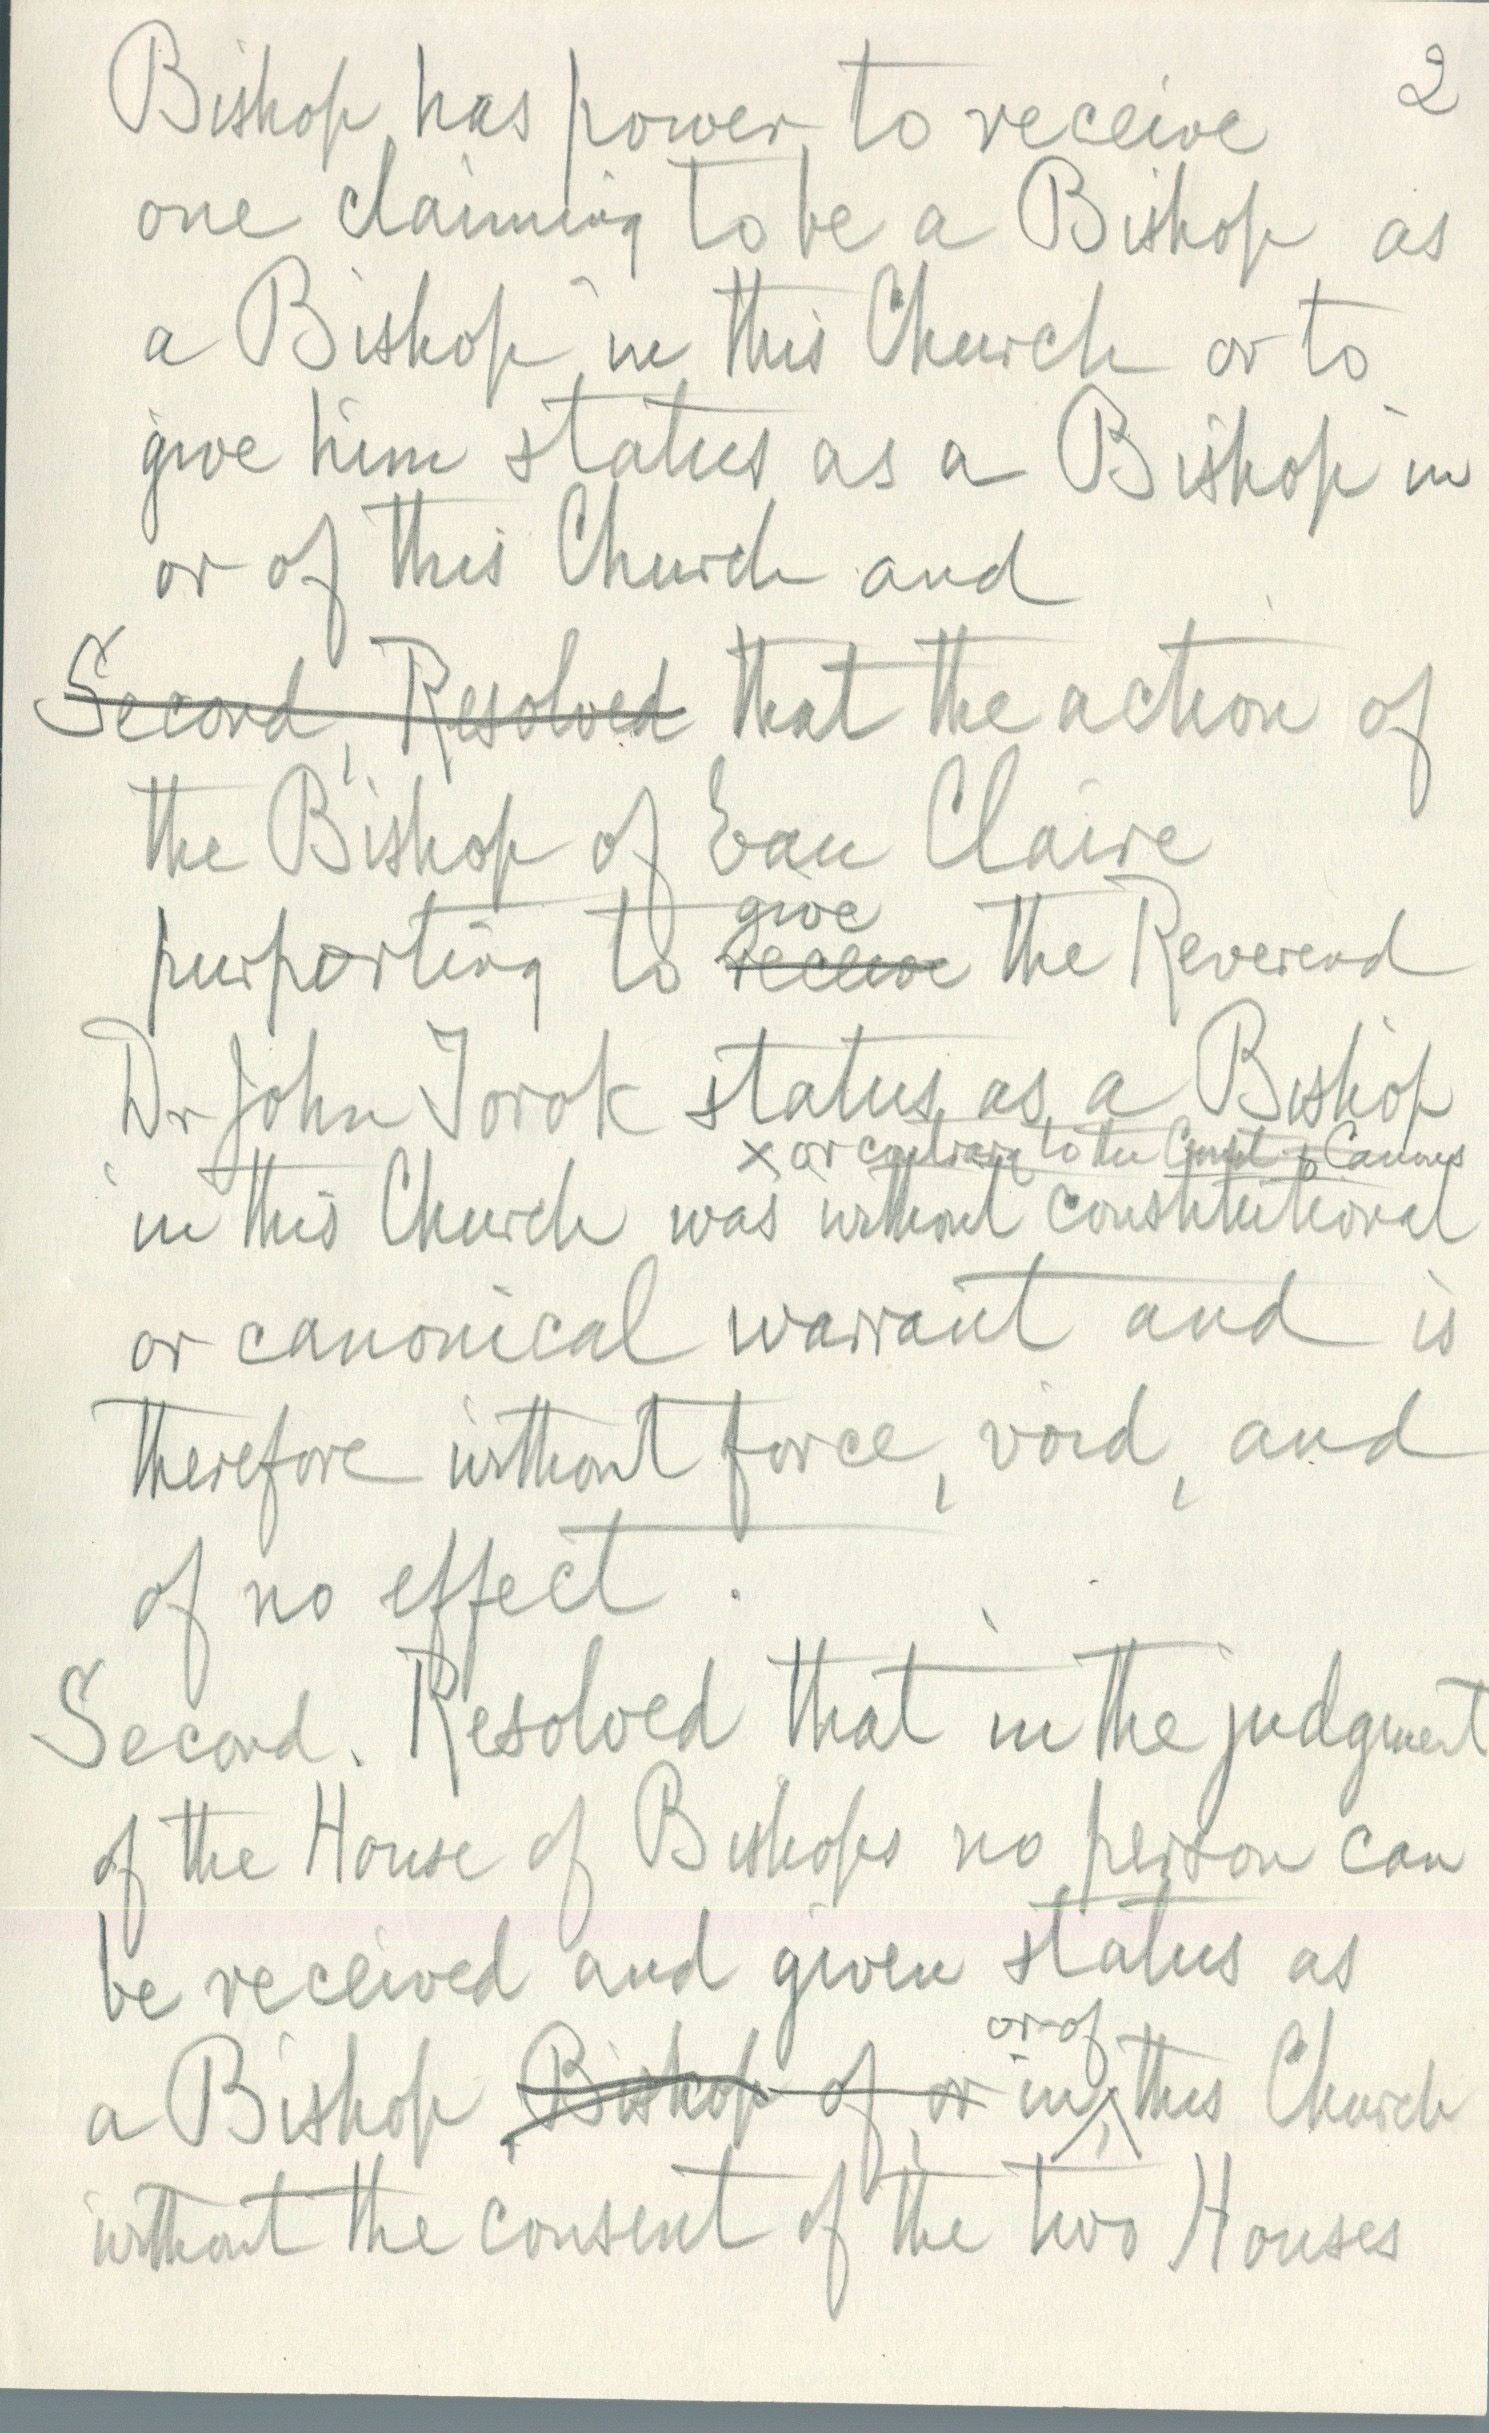 2
Bishop has power to receive
one claiming to be a Bishop as
a Bishop in this Church or to
give him status as a Bishop in
or of this Church and
Second, Resolved that the action of
the Bishop of Eau Claire
give
purporting to receive the Reverend
Dr John Torok status as a Bishop
x or contrary to the Const & Canons
in this Church was without constitutional
or canonical warrant and is
therefore without force, void, and
of no effect.
Second. Resolved that in the judgment
of the House of Bishops no person can
be received and given status as
or of
a Bishop Bishop of, or in this Church
without the consent of the two Houses